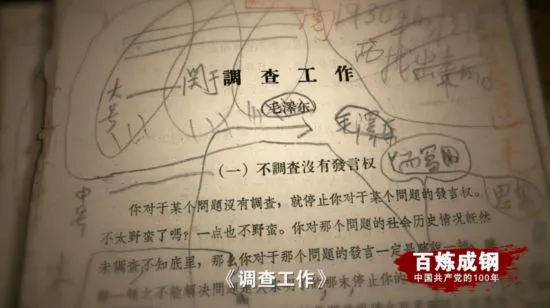 大号
关于
調查工作
毛澤东
毛泽东
中号
(一) 不調查沒有發言权
你对于某个問題沒有調查,就停止你对于某个問題的發言权。
不太野蛮了嗎?一点也不野蛮。你对那个問題的社会历史情况既然
未調查不知底里,那么你对于那个問題的發言一定是瞎說一頓
一頓之不能解决問題是大家 那末停止你的發
《调查工作》
百炼成钢
中国共产党的100年